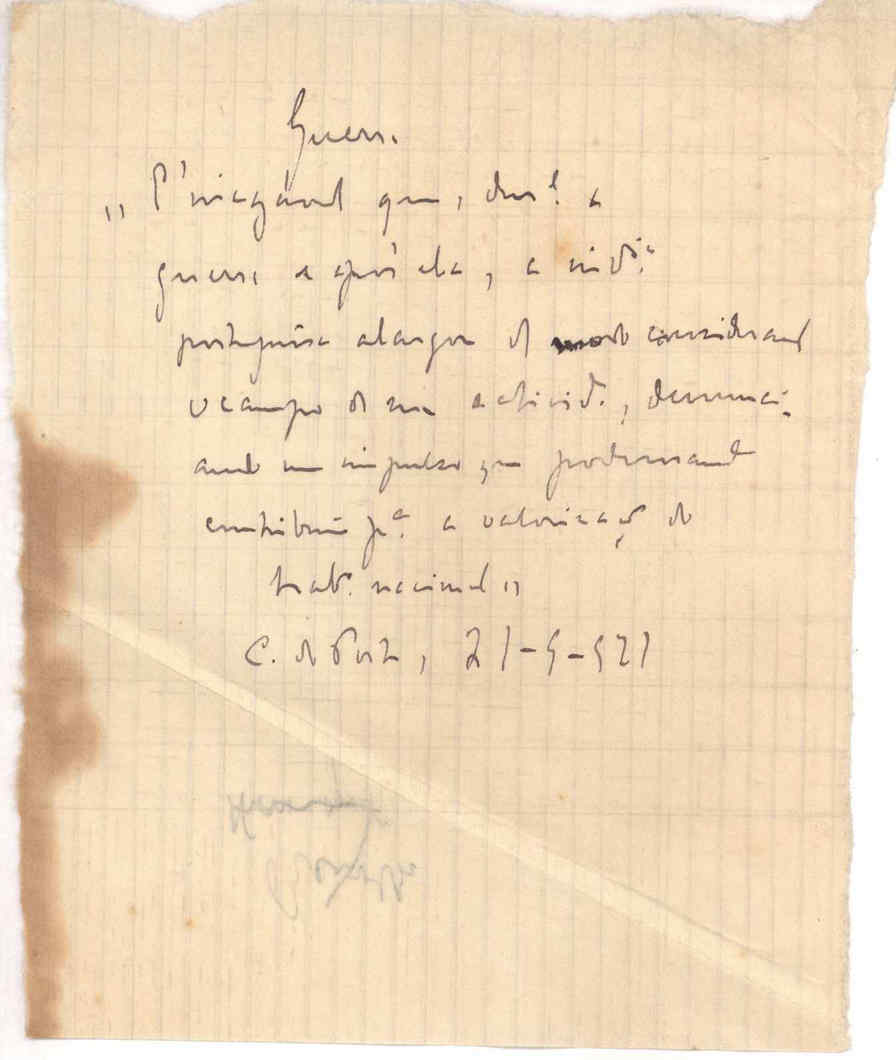 Guerra
"É inegável que, dur.te a
guerra e após ela, a ind.ia
portuguesa alargou de modo considerável
o campo da sua activid.e, denunci-
ando um impulso que poderosamente
contribuiu p.a a valorização do
trab.o nacional"
C. do Porto, 21-5-921